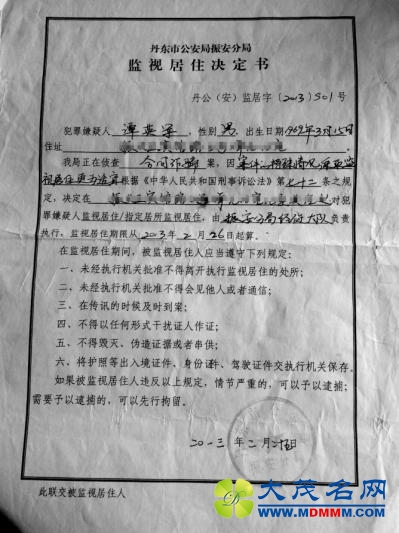 丹东市公安局振安分局
监视居住决定书
丹公（安）监居字〔2013〕501号
犯罪嫌疑人 谭 性别 男 出生日期 1969年3月15日
住址
我局正在侦查 合同诈骗 案，因 案件
视居住更为适宜 根据《中华人民共和国刑事诉讼法》第七十二条之规
定，决定在 对犯
罪嫌疑人监视居住/指定居所监视居住，由 振安分局经侦大队 负责
执行，监视居住期限从 2013年2月26日起算。
在监视居住期间，被监视居住人应当遵守下列规定：
一、未经执行机关批准不得离开执行监视居住的处所；
二、未经执行机关批准不得会见他人或者通信；
三、在传讯的时候及时到案；
四、不得以任何形式干扰证人作证；
五、不得毁灭、伪造证据或者串供；
六、将护照等出入境证件、身份证件、驾驶证件交执行机关保存。
如果被监视居住人违反以上规定，情节严重的，可以予以逮捕；
需要予以逮捕的，可以先行拘留。
二〇一三年二月 日
此联交被监视居住人
大茂名网
WWW.MDMMM.COM